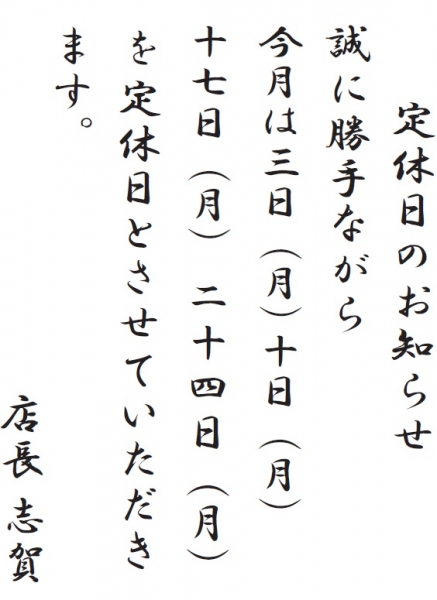 定休日のお知らせ
誠に勝手ながら
今月は三日（月）十日（月）
十七日（月）二十四日（月）
を定休日とさせていただき
ます。
店長 志賀